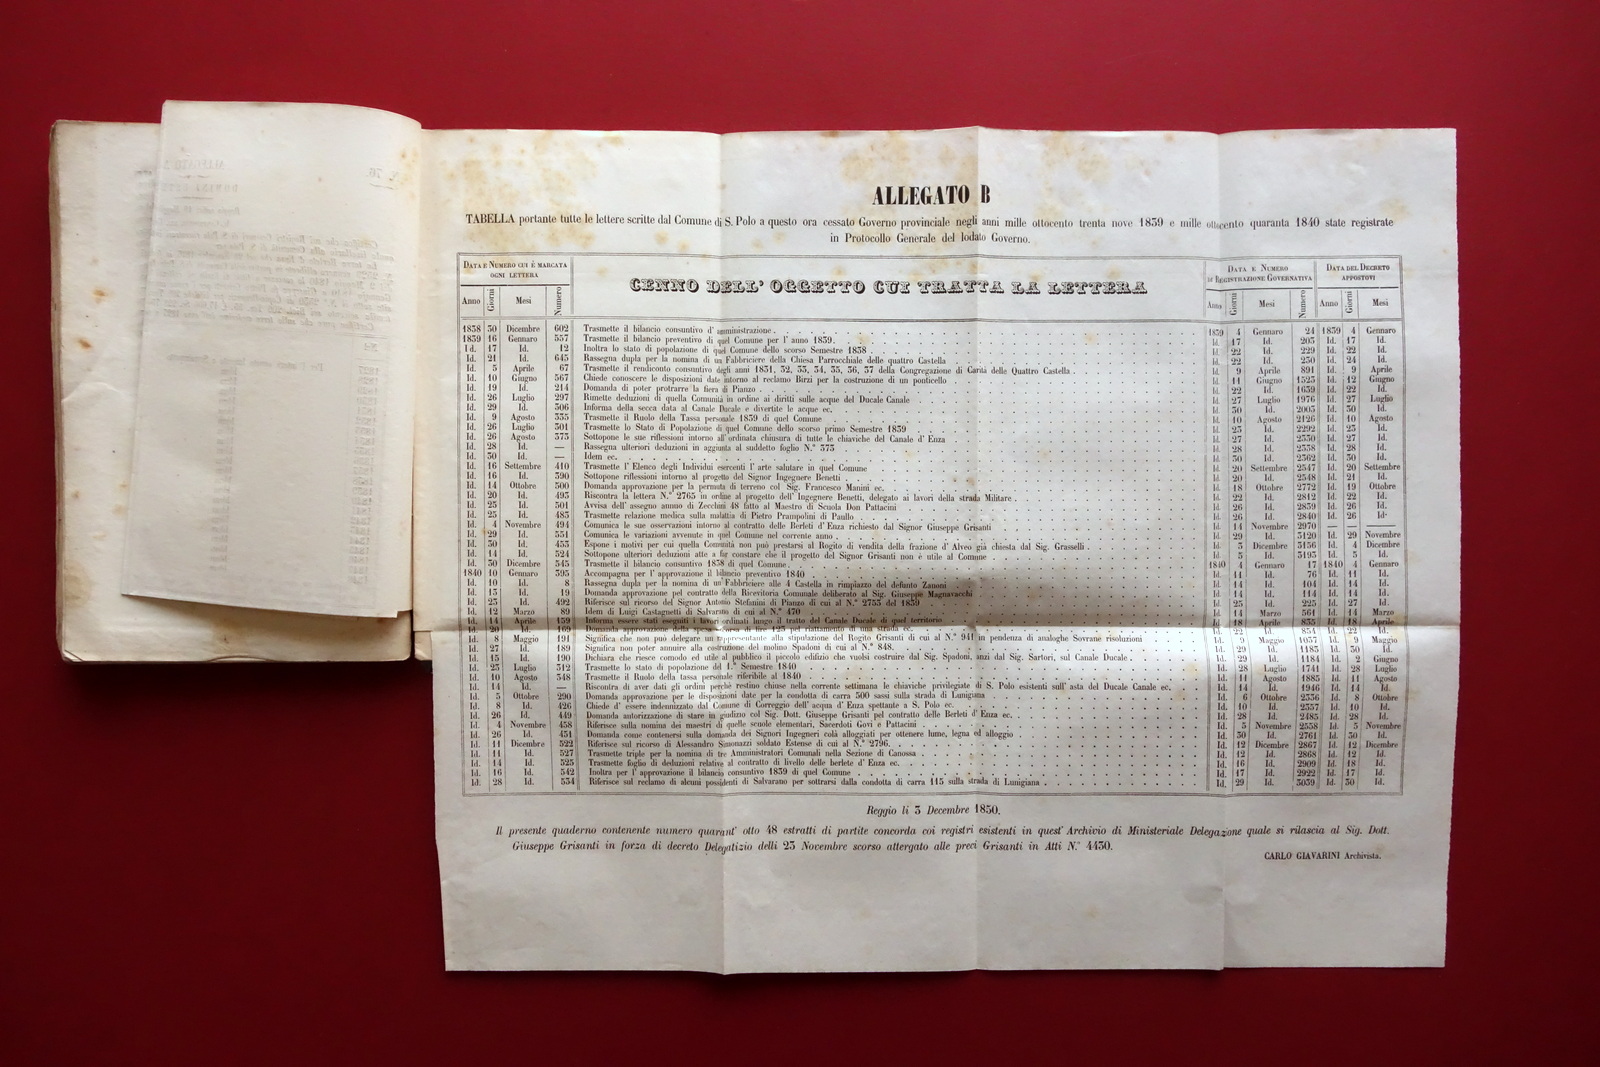 ALLEGATO B
TABELLA portante tutte le lettere scritte dal Comune di S. Polo a questo ora cessato Governo provinciale negli anni mille ottocento trenta nove 1839 e mille ottocento quaranta 1840 state registrate
in Protocollo Generale del lodato Governo.
DATA E NUMERO CUI È MARCATA OGNI LETTERA
CENNO DELL' OGGETTO CUI TRATTA LA LETTERA
DATA E NUMERO DI REGISTRAZIONE GOVERNATIVA
DATA DEL DECRETO APPOSTOVI
Anno Giorni Mesi Numero Anno Giorni Mesi Numero Anno Giorni Mesi
1838 30 Dicembre 602 Trasmette il bilancio consuntivo d' amministrazione 1839 4 Gennaro 24 1839 4 Gennaro
1839 16 Gennaro 557 Trasmette il bilancio preventivo di quel Comune per l' anno 1839. Id. 17 Id. 203 Id. 17 Id.
Id. 17 Id. 12 Inoltra lo stato di popolazione di quel Comune dello scorso Semestre 1838 Id. 22 Id. 229 Id. 22 Id.
Id. 21 Id. 645 Rassegna dupla per la nomina di un Fabbriciere della Chiesa Parrocchiale delle quattro Castella Id. 22 Id. 250 Id. 24 Id.
Id. 5 Aprile 67 Trasmette il rendiconto consuntivo degli anni 1831, 32, 33, 34, 35, 36, 37 della Congregazione di Carità delle Quattro Castella Id. 9 Aprile 891 Id. 9 Aprile
Id. 10 Giugno 567 Chiede conoscere le disposizioni date intorno al reclamo Birzi per la costruzione di un ponticello Id. 11 Giugno 1525 Id. 12 Giugno
Id. 19 Id. 214 Domanda di poter protrarre la fiera di Pianzo Id. 22 Id. 1639 Id. 22 Id.
Id. 26 Luglio 297 Rimette deduzioni di quella Comunità in ordine ai diritti sulle acque del Ducale Canale Id. 27 Luglio 1976 Id. 27 Luglio
Id. 29 Id. 306 Informa della secca data al Canale Ducale e divertite le acque ec. Id. 30 Id. 2003 Id. 30 Id.
Id. 9 Agosto 335 Trasmette il Ruolo della Tassa personale 1839 di quel Comune Id. 10 Agosto 2126 Id. 10 Agosto
Id. 26 Luglio 301 Trasmette lo Stato di Popolazione di quel Comune dello scorso primo Semestre 1839 Id. 25 Id. 2292 Id. 25 Id.
Id. 26 Agosto 373 Sottopone le sue riflessioni intorno all' ordinata chiusura di tutte le chiaviche del Canale d' Enza Id. 27 Id. 2330 Id. 27 Id.
Id. 28 Id. — Rassegna ulteriori deduzioni in aggiunta al suddetto foglio N.° 373 Id. 28 Id. 2338 Id. 28 Id.
Id. 30 Id. — Idem ec. Id. 30 Id. 2362 Id. 30 Id.
Id. 16 Settembre 410 Trasmette l' Elenco degli Individui esercenti l' arte salutare in quel Comune Id. 20 Settembre 2547 Id. 20 Settembre
Id. 16 Id. 390 Sottopone riflessioni intorno al progetto del Signor Ingegnere Benetti Id. 20 Id. 2548 Id. 21 Id.
Id. 14 Ottobre 500 Domanda approvazione per la permuta di terreno col Sig. Francesco Manini ec. Id. 18 Ottobre 2772 Id. 19 Ottobre
Id. 20 Id. 493 Riscontra la lettera N.° 2765 in ordine al progetto dell' Ingegnere Benetti, delegato ai lavori della strada Militare Id. 22 Id. 2812 Id. 22 Id.
Id. 25 Id. 501 Avvisa dell' assegno annuo di Zecchini 48 fatto al Maestro di Scuola Don Pattacini Id. 26 Id. 2839 Id. 26 Id.
Id. 25 Id. 485 Trasmette relazione medica sulla malattia di Pietro Prampolini de Paullo Id. 26 Id. 2840 Id. 26 Id.
Id. 4 Novembre 494 Comunica le sue osservazioni intorno al contratto delle Berleti d' Enza richiesto dal Signor Giuseppe Grisanti Id. 14 Novembre 2970 — — —
Id. 29 Id. 551 Comunica le variazioni avvenute in quel Comune nel corrente anno Id. 29 Id. 3120 Id. 29 Novembre
Id. 30 Id. 453 Espone i motivi per cui quella Comunità non può prestarsi al Rogito di vendita della frazione d' Alveo già chiesta dal Sig. Grasselli Id. 3 Dicembre 3156 Id. 4 Dicembre
Id. 14 Id. 524 Sottopone ulteriori deduzioni atte a far constare che il progetto del Signor Grisanti non è utile al Comune Id. 5 Id. 3195 Id. 5 Id.
Id. 30 Dicembre 545 Trasmette il bilancio consuntivo 1838 di quel Comune 1840 4 Gennaro 17 1840 4 Gennaro
1840 10 Gennaro 595 Accompagna per l' approvazione il bilancio preventivo 1840 Id. 11 Id. 76 Id. 11 Id.
Id. 10 Id. 8 Rassegna dupla per la nomina di un Fabbriciere alle 4 Castella in rimpiazzo del defunto Zanoni Id. 14 Id. 104 Id. 14 Id.
Id. 13 Id. 19 Domanda approvazione pel contratto della Ricevitoria Comunale deliberato al Sig. Giuseppe Magnavacchi Id. 14 Id. 114 Id. 14 Id.
Id. 23 Id. 492 Riferisce sul ricorso del Signor Antonio Stefanini di Pianzo di cui al N.° 2755 del 1839 Id. 25 Id. 225 Id. 27 Id.
Id. 12 Marzo 89 Idem di Luigi Castagnetti di Salvarano di cui al N.° 470 Id. 14 Marzo 561 Id. 14 Marzo
Id. 14 Aprile 159 Informa essere stati eseguiti i lavori ordinati luogo il tratto del Canale Ducale di quel territorio Id. 18 Aprile 835 Id. 18 Aprile
Id. 20 Id. 169 Domanda approvazione della spesa occorsa di lire 125 pel riattamento di una strada ec. Id. 22 Id. 854 Id. 22 Id.
Id. 8 Maggio 191 Significa che non può delegare un rappresentante alla stipulazione del Rogito Grisanti di cui al N.° 941 in pendenza di analoghe Sovrane risoluzioni Id. 9 Maggio 1037 Id. 9 Maggio
Id. 27 Id. 189 Significa non poter annuire alla costruzione del molino Spadoni di cui al N.° 848. Id. 29 Id. 1183 Id. 30 Id.
Id. 15 Id. 190 Dichiara che riesce comodo ed utile al pubblico il piccolo edifizio che vuolsi costruire dal Sig. Spadoni, anzi dal Sig. Sartori, sul Canale Ducale Id. 29 Id. 1184 Id. 2 Giugno
Id. 25 Luglio 312 Trasmette lo stato di popolazione del 1.° Semestre 1840 Id. 28 Luglio 1741 Id. 28 Luglio
Id. 10 Agosto 348 Trasmette il Ruolo della tassa personale riferibile al 1840 Id. 11 Agosto 1885 Id. 11 Agosto
Id. 14 Id. — Riscontra di aver dati gli ordini perchè restino chiuse nella corrente settimana le chiaviche privilegiate di S. Polo esistenti sull' asta del Ducale Canale ec. Id. 14 Id. 1946 Id. 14 Id.
Id. 5 Ottobre 290 Domanda approvazione per le disposizioni date per la condotta di carra 500 sassi sulla strada di Lunigiana Id. 6 Ottobre 2336 Id. 8 Ottobre
Id. 8 Id. 426 Chiede d' essere indennizzato dal Comune di Correggio dell' acqua d' Enza spettante a S. Polo ec. Id. 10 Id. 2357 Id. 10 Id.
Id. 26 Id. 449 Domanda autorizzazione di stare in giudizo col Sig. Dott. Giuseppe Grisanti pel contratto delle Berleti d' Enza ec. Id. 28 Id. 2485 Id. 28 Id.
Id. 4 Novembre 458 Riferisce sulla nomina dei maestri di quelle scuole elementari, Sacerdoti Govi e Pattacini Id. 5 Novembre 2558 Id. 5 Novembre
Id. 26 Id. 451 Domanda come contenersi sulla domanda dei Signori Ingegneri colà alloggiati per ottenere lume, legna ed alloggio Id. 30 Id. 2761 Id. 30 Id.
Id. 11 Dicembre 522 Riferisce sul ricorso di Alessandro Simonazzi soldato Estense di cui al N.° 2796. Id. 12 Dicembre 2867 Id. 12 Dicembre
Id. 11 Id. 527 Trasmette triple per la nomina di tre Amministratori Comunali nella Sezione di Canossa Id. 12 Id. 2868 Id. 12 Id.
Id. 14 Id. 525 Trasmette foglio di deduzioni relative al contratto di livello delle berlete d' Enza ec. Id. 16 Id. 2909 Id. 18 Id.
Id. 16 Id. 542 Inoltra per l' approvazione il bilancio consuntivo 1839 di quel Comune Id. 17 Id. 2922 Id. 17 Id.
Id. 28 Id. 554 Riferisce sul reclamo di alcuni possidenti di Salvarano per sottrarsi dalla condotta di carra 115 sulla strada di Lunigiana Id. 29 Id. 3039 Id. 30 Id.
Reggio li 3 Decembre 1850.
Il presente quaderno contenente numero quarant' otto 48 estratti di partite concorda coi registri esistenti in quest' Archivio di Ministeriale Delegazione quale si rilascia al Sig. Dott.
Giuseppe Grisanti in forza di decreto Delegatizio delli 23 Novembre scorso attergato alle preci Grisanti in Atti N.° 4430.
CARLO GIAVARINI Archivista.